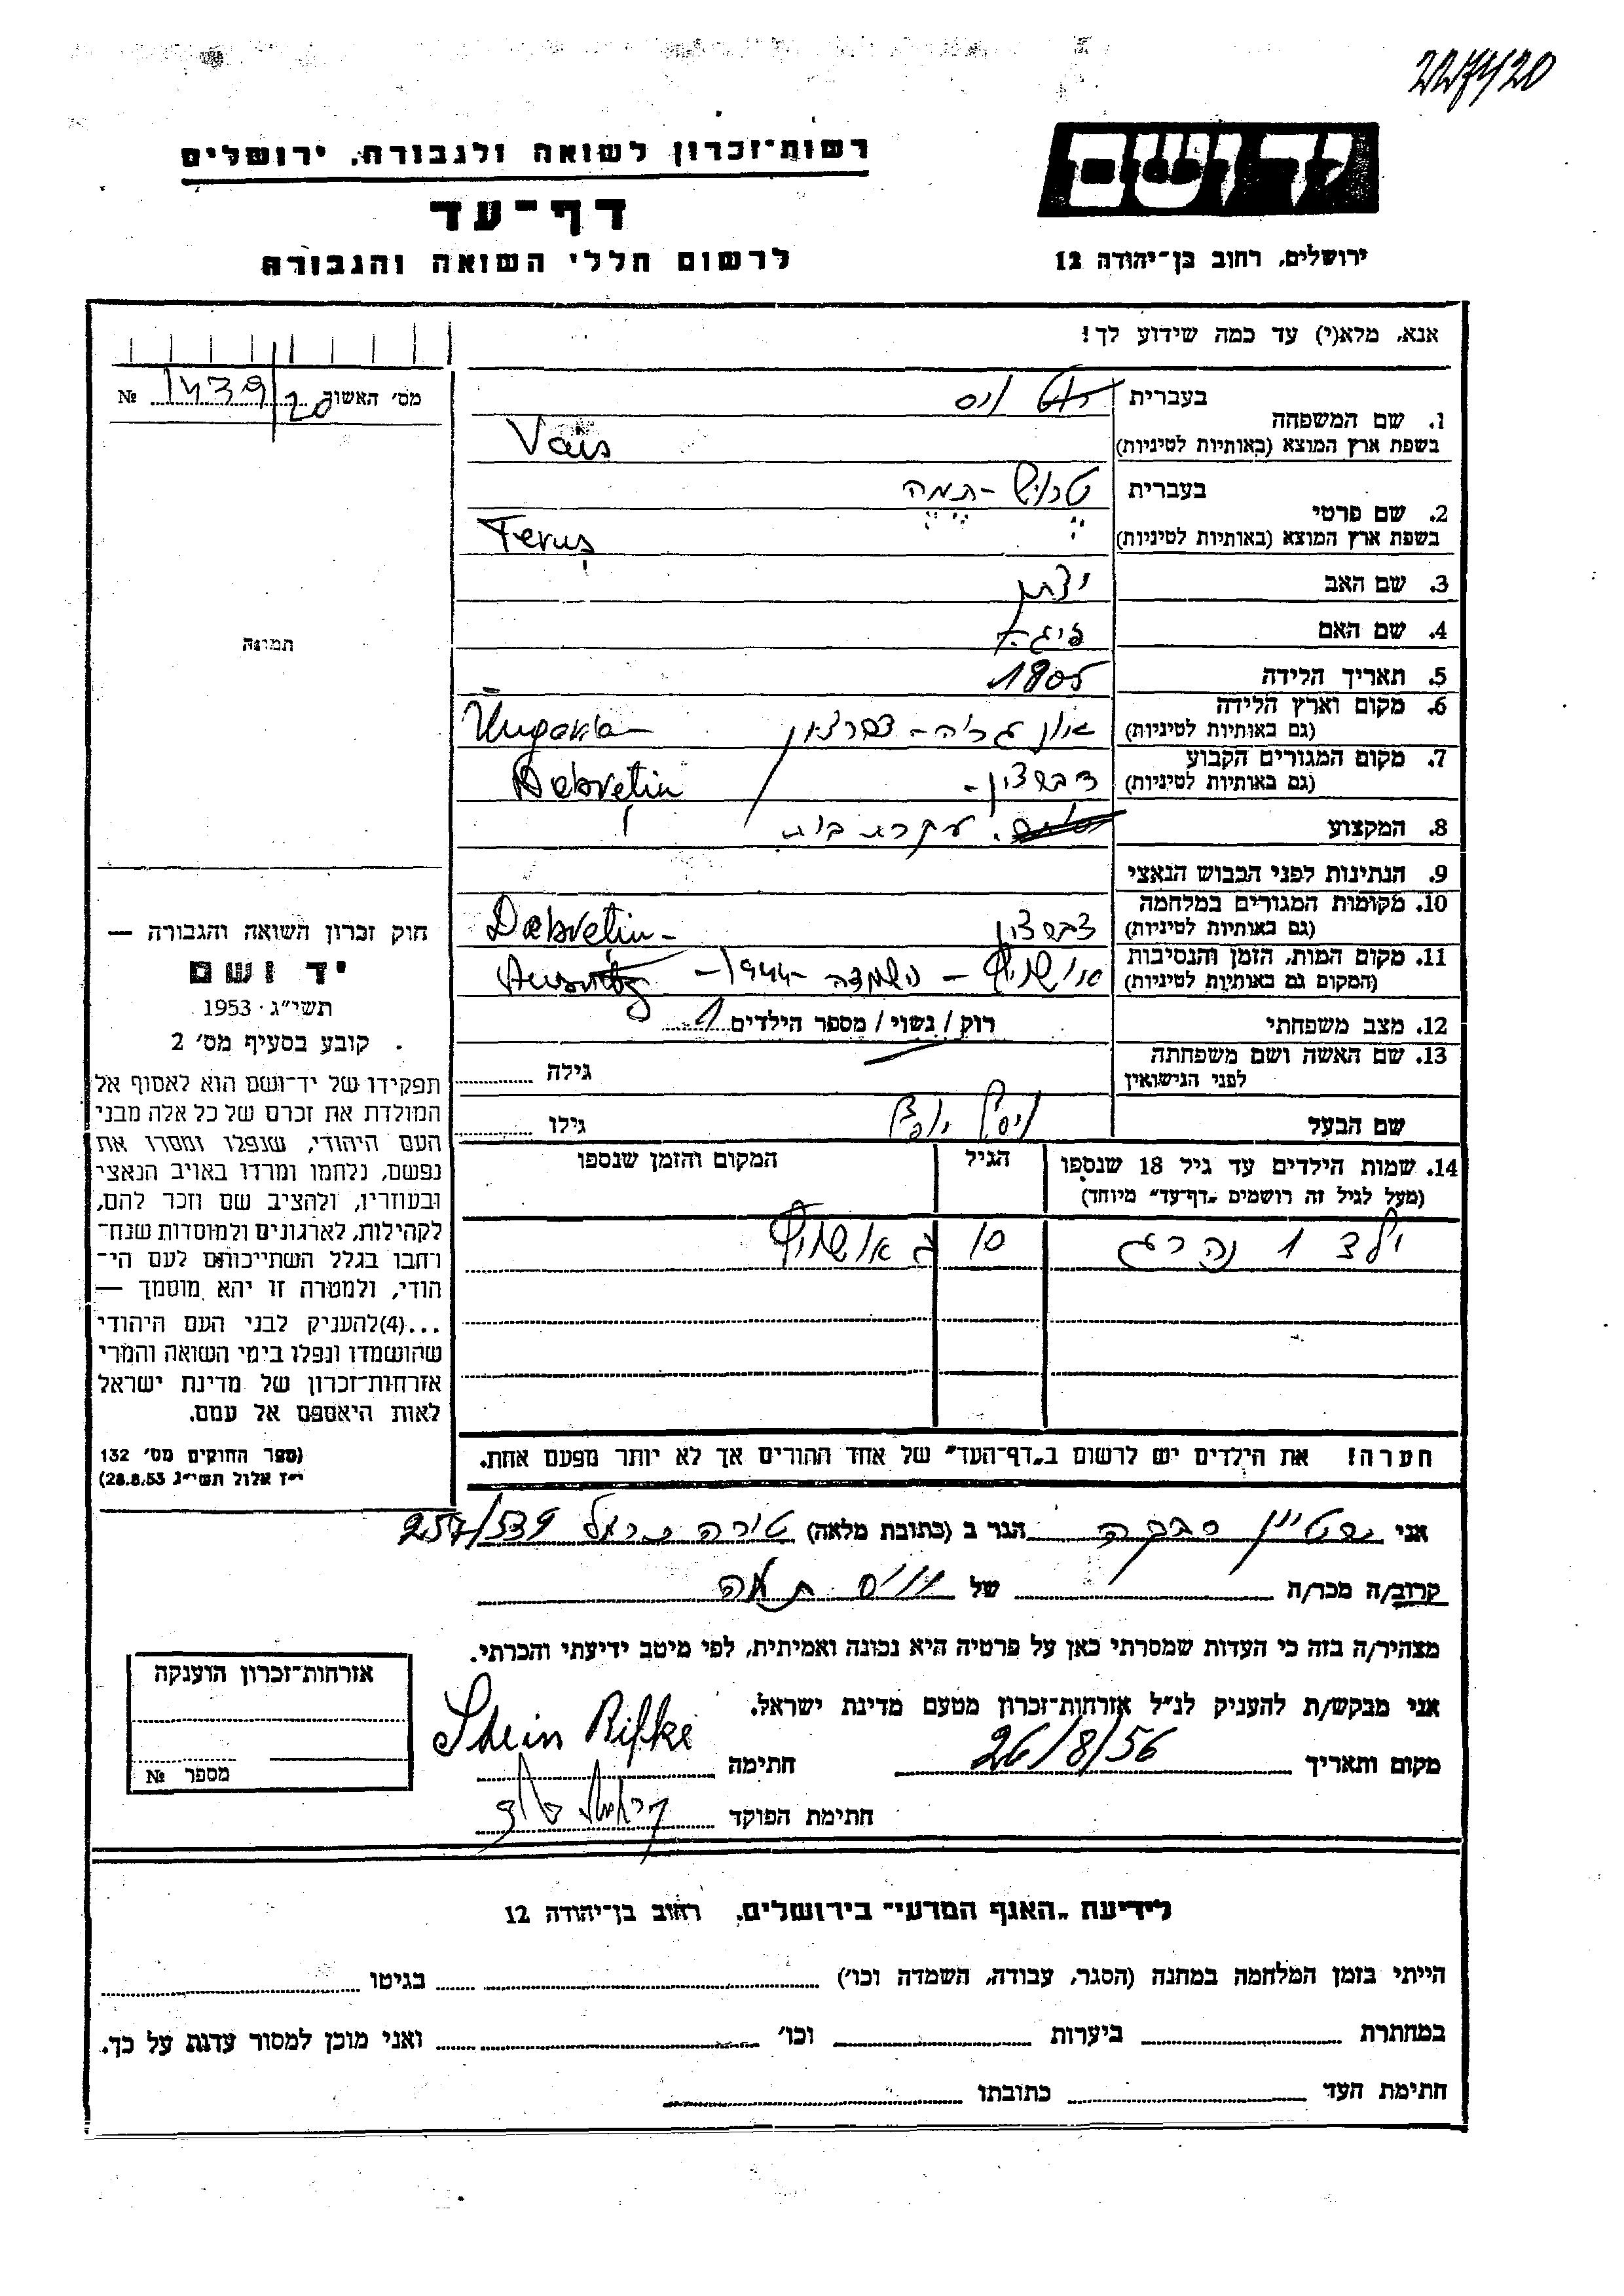 2274/20
יד ושם
רשות־זכרון לשואה ולגבורה, ירושלים
דף־עד
לרשום חללי השואה והגבורה
ירושלים, רחוב בן־יהודה 12
אנא, מלא(י) עד כמה שידוע לך!
מס׳ האשור 1439/20 №
1. שם המשפחה
בעברית וייס
בשפת ארץ המוצא (באותיות לטיניות) Vais
2. שם פרטי
בעברית טרוש - תמה
בשפת ארץ המוצא (באותיות לטיניות) Feruș
3. שם האב יצחק
4. שם האם
5. תאריך הלידה 1905
6. מקום וארץ הלידה
(גם באותיות לטיניות) אונגריה - דברצין Ungaria
7. מקום המגורים הקבוע
(גם באותיות לטיניות) דברצין - Debrețin
8. המקצוע עקרת בית
9. הנתינות לפני הכבוש הנאצי
10. מקומות המגורים במלחמה
(גם באותיות לטיניות) דברצין Debrețin -
11. מקום המות, הזמן והנסיבות
(המקום גם באותיות לטיניות) אושויץ - הושמדה 1944
12. מצב משפחתי רווק / נשוי / מספר הילדים 1
13. שם האשה ושם משפחתה
לפני הנישואין גילה
שם הבעל גילו
14. שמות הילדים עד גיל 18 שנספו
(מעל לגיל זה רושמים „דף־עד״ מיוחד)
הגיל
המקום והזמן שנספו
ילד 1 נהרג 10 אושויץ
הערה! את הילדים יש לרשום ב„דף־העד״ של אחד ההורים אך לא יותר מפעם אחת.
תמונה
חוק זכרון השואה והגבורה —
יד ושם
תשי״ג · 1953
קובע בסעיף מס׳ 2
תפקידו של יד־ושם הוא לאסוף אל
המולדת את זכרם של כל אלה מבני
העם היהודי, שנפלו ומסרו את
נפשם, נלחמו ומרדו באויב הנאצי
ובעוזריו, ולהציב שם וזכר להם,
לקהילות, לארגונים ולמוסדות שנח־
רחבו בגלל השתייכותם לעם הי־
הודי, ולמטרה זו יהא מוסמך —
...(4) להעניק לבני העם היהודי
שהושמדו ונפלו בימי השואה והמרי
אזרחות־זכרון של מדינת ישראל
לאות היאספם אל עמם.
(ספר החוקים מס׳ 132
י״ז אלול תשי״ג 28.8.53)
אני שטיין רבקה הגר ב (כתובת מלאה) טירה כרמל 257/539
קרוב/ה מכר/ה של וייס תמה
מצהיר/ה בזה כי העדות שמסרתי כאן על פרטיה היא נכונה ואמיתית, לפי מיטב ידיעתי והכרתי.
אני מבקש/ת להעניק לנ״ל אזרחות־זכרון מטעם מדינת ישראל.
מקום ותאריך 26/8/56 חתימה Shein Rifke
חתימת הפוקד
אזרחות־זכרון הוענקה
מספר №
לידיעת „האגף המדעי״ בירושלים, רחוב בן־יהודה 12
הייתי בזמן המלחמה במחנה (הסגר, עבודה, השמדה וכו׳) בגיטו
במחתרת ביערות וכו׳ ואני מוכן למסור עדות על כך.
חתימת העד כתובתו